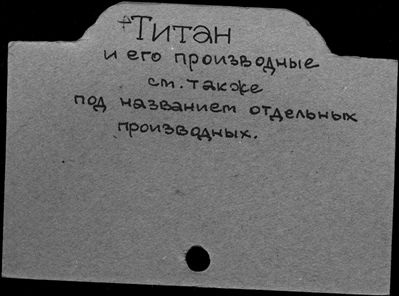 +Титан
и его производные
см. также
под названием отдельных
производных.